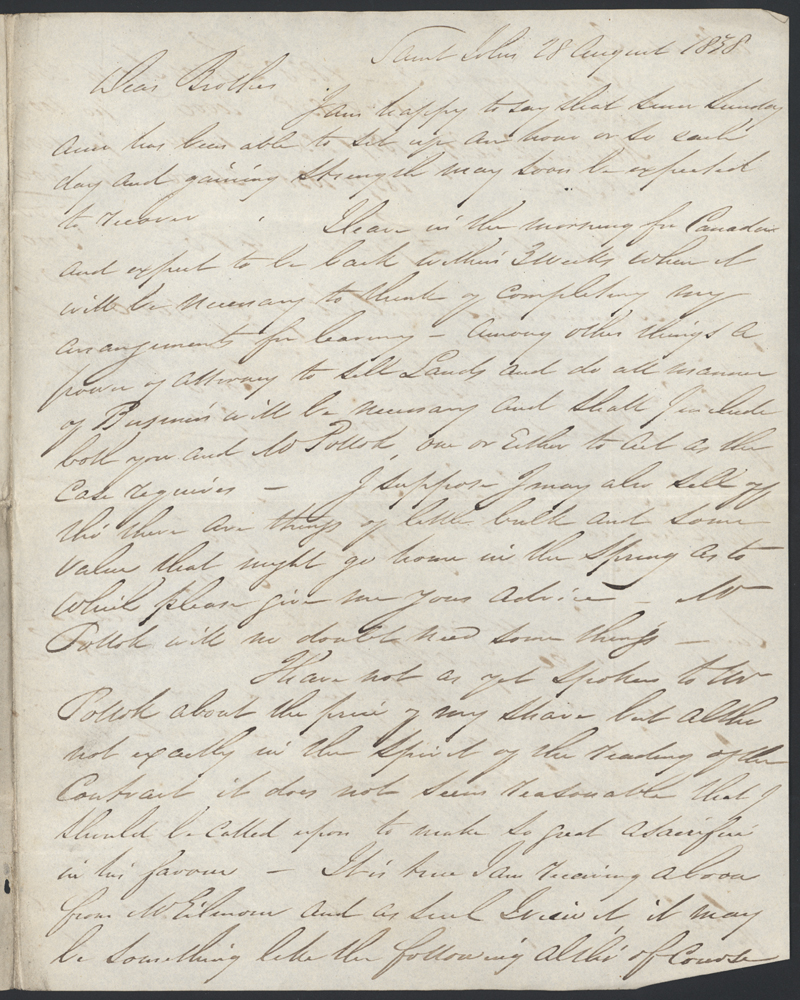 Saint John 28 August 1838
Dear Brother
I am happy to say that since Sunday
Anna has been able to sit up an hour or so each
day and gaining strength may soon be expected
to recover. I leave in the morning for Canada
and expect to be back within 3 weeks when it
will be necessary to think of completing my
arrangements for leaving – among other things a
power of attorney to sell Lands and do all manner
of Business will be necessary and shall I include
both you and Mr Pollok, one or Either to act as the
Case requires – I suppose I may also sell off
tho' there are things of little bulk and some
value that might go home in the Spring as to
which please give me your advice – Mr
Pollok will no doubt need some things –
I have not as yet spoken to Mr
Pollok about the price of my share but altho
not exactly in the Spirit of the reading of the
Contract it does not seem reasonable that I
should be called upon to make so great a sacrifice
in his favour – It is true I am receiving a boon
from Mr Gilmour and as such I view it it may
be something like the following altho' of Course